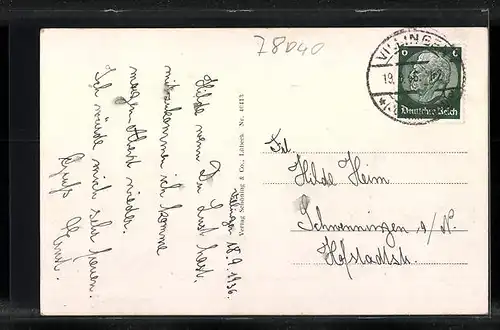 78040
Villingen 18.9.1936.
Hilde wenn Du Lust hast
mitzukommen ich komme
morgen Abend wieder.
Ich würde mich sehr freuen.
Gruß
Verlag Schöning & Co., Lübeck. Nr.
VILLINGEN
19.
6 6
Deutsches Reich
Frl.
Hilde Heim
Schwenningen a/N.
Hofstadtstr.